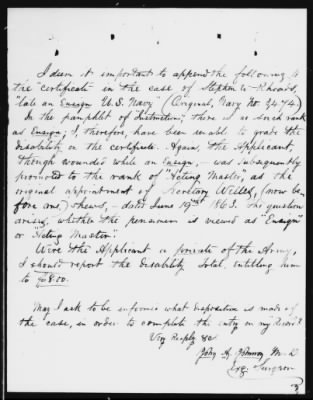 I deem it important to append the following to
the "certificate in the case of Stephen W. Rhoads,
"late an Ensign U.S. Navy" (Original, Navy No. 2474)
In the pamphlet of Instructions, there is no such rank
as Ensign; I, therefore, have been unable to grade the
disability in the certificate. Again, the Applicant,
though wounded while an Ensign, was subsequently
promoted to the rank of "Acting Master", as the
original appointment of Secretary Welles, (now be-
fore me) shews, dated June 19th 1863. The question
arises, whether the pensioner is viewed as "Ensign"
or "Acting Master".
Were the Applicant a private of the Army,
I should report the Disability total, entitling him
to $8.00.
May I ask to be informed what disposition is made of
the case, in order to complete the entry on my Record?
Very Resply &c
John A. M. D
Exg. Surgeon